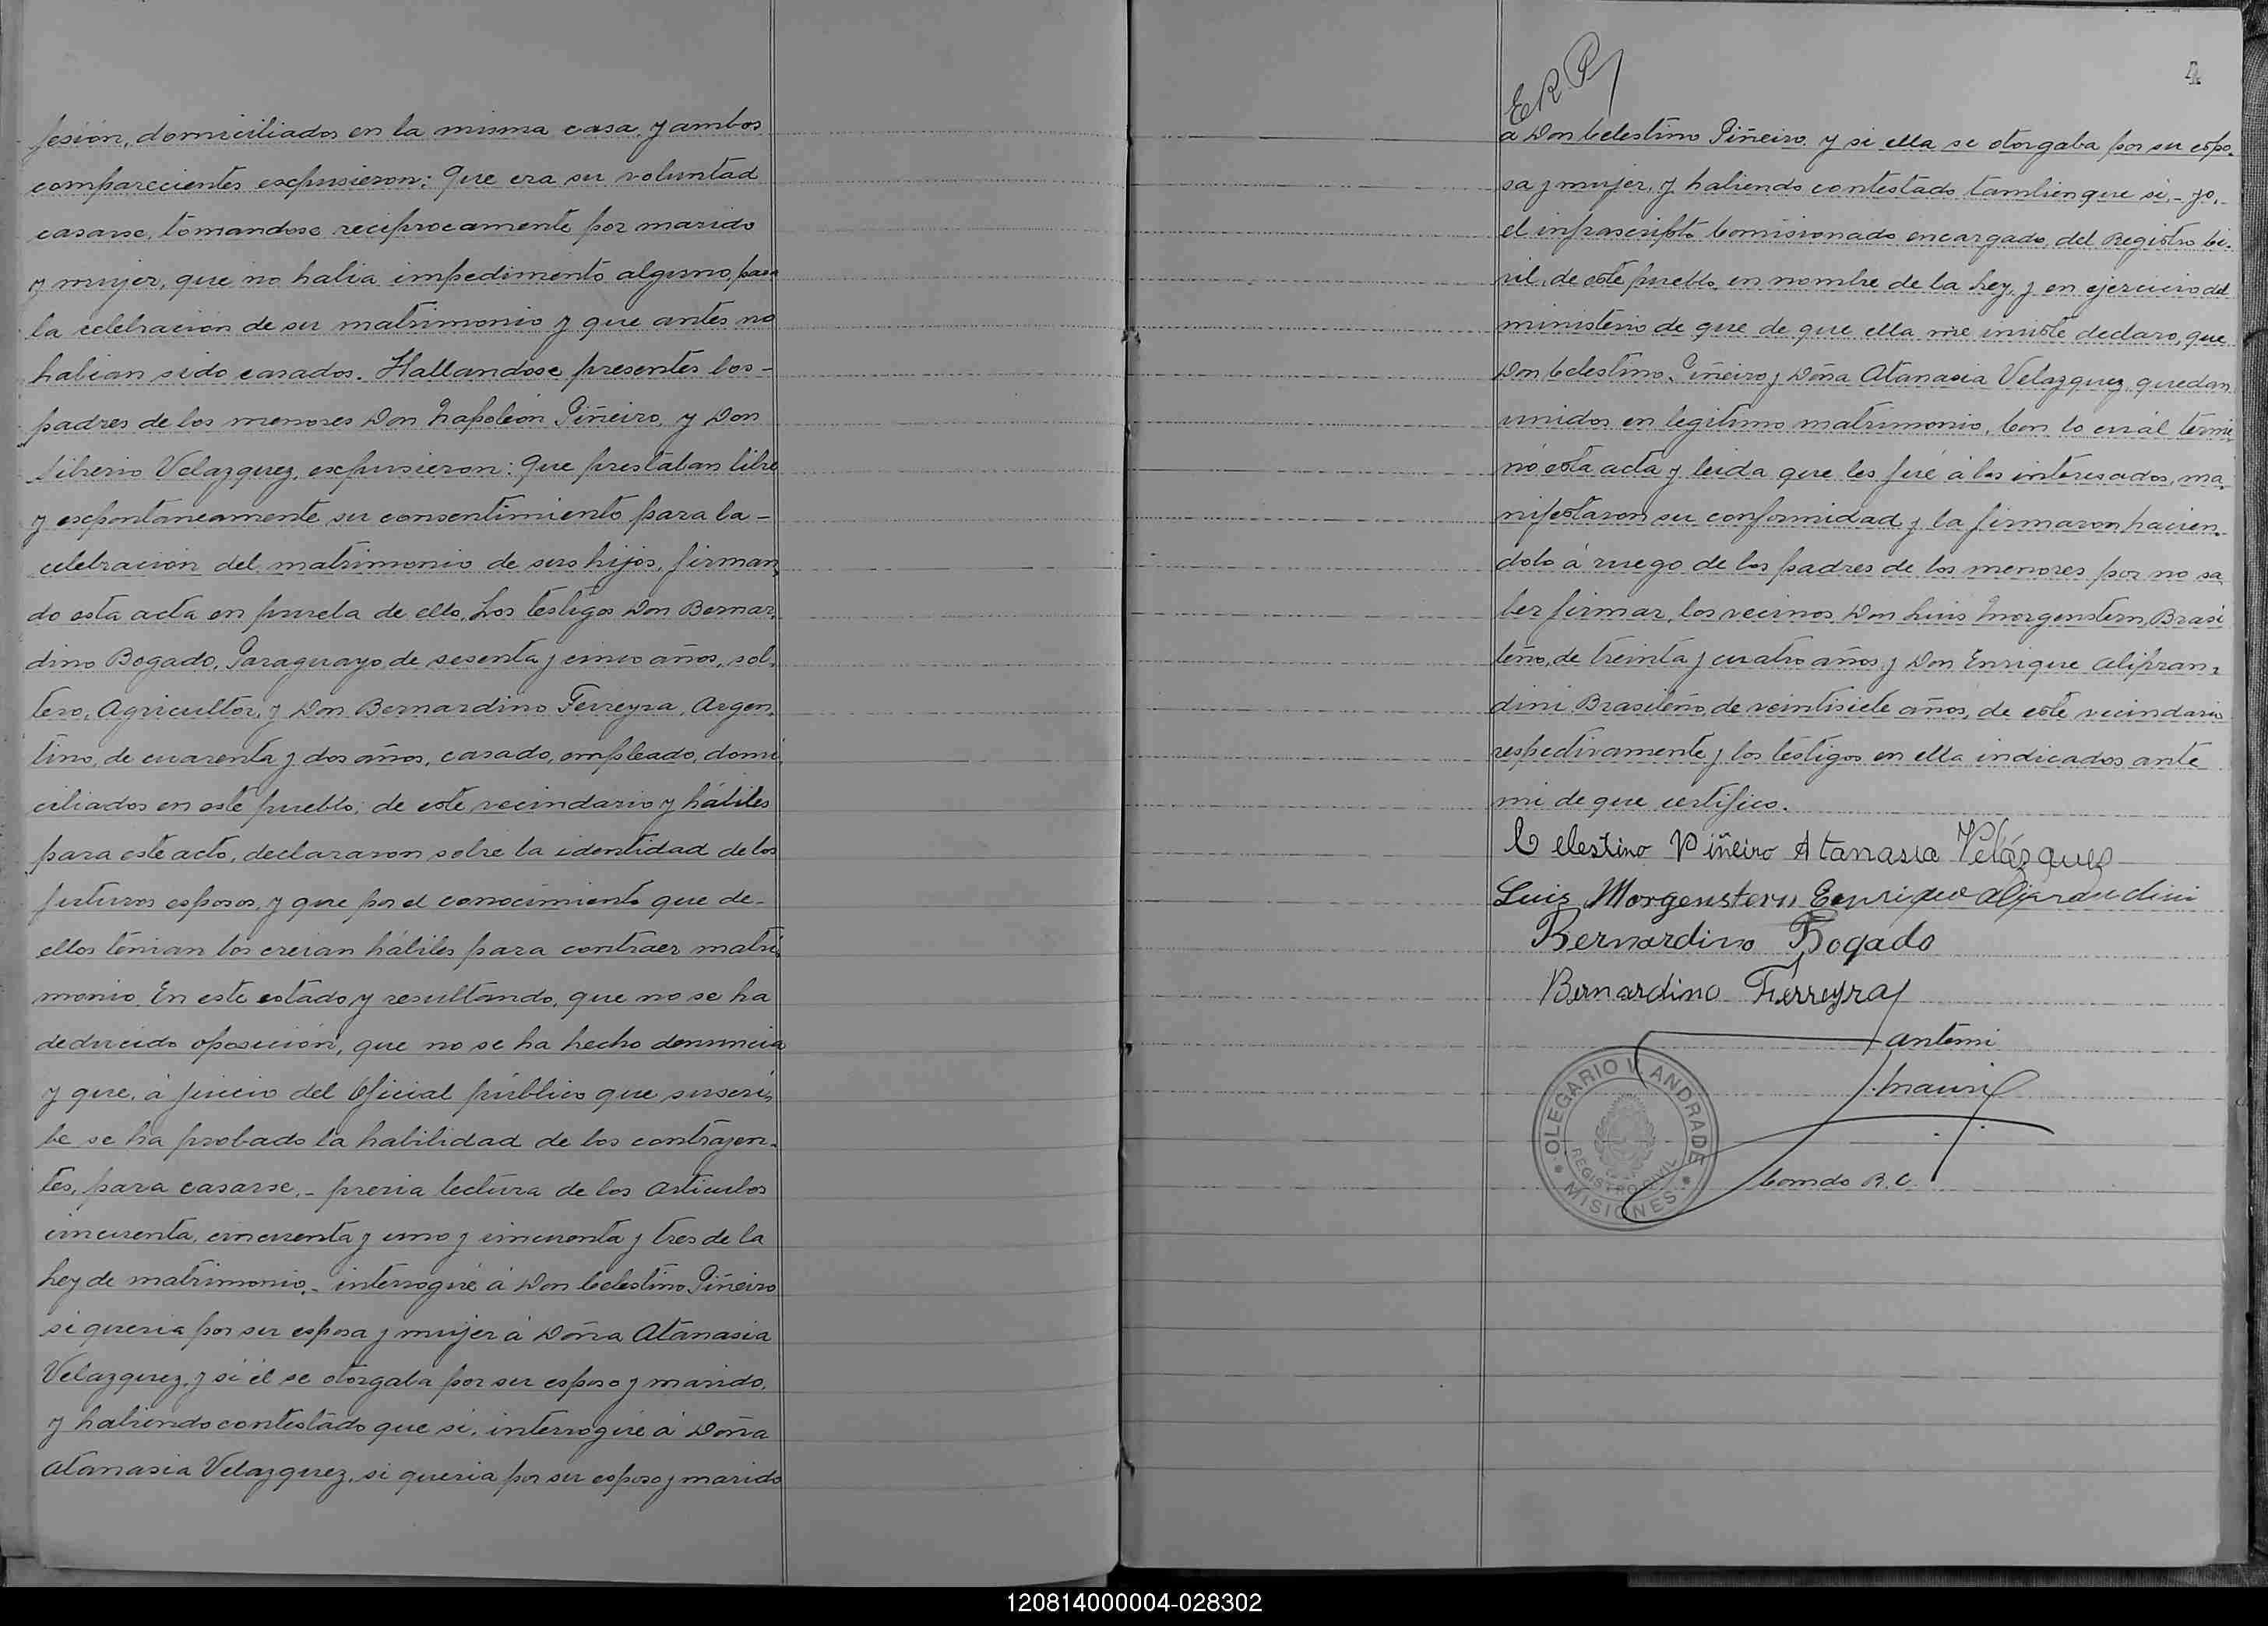 fesión, domiciliados en la misma casa, y ambos
comparecientes expusieron: Que era su voluntad
casarse, tomandose reciprocamente por marido
y mujer, que no habia impedimento alguno, para
la celebracion de su matrimonio y que antes no
habian sido casados. Hallandose presentes los -
padres de los menores Don Napoleón Piñeiro, y Don
Silverio Velazquez, expusieron: Que prestaban libre
y expontaneamente su consentimiento para la -
celebracion del matrimonio de sus hijos, firman,
do esta acta en prueba de ello, Los testigos Don Bernar,
dino Bogado, Paraguayo de sesenta y cinco años, sol,
tero, Agricultor, y Don Bernardino Ferreyra, Argen,
tino, de cuarenta y dos años, casado, empleado, domi,
ciliados en este pueblo; de este vecindario y hábiles
para este acto, declararon sobre la identidad de los
futuros esposos, y que por el conocimiento que de -
ellos tenian los creian hábiles para contraer matri,
monio. En este estado y resultando, que no se ha
deducido oposición, que no se ha hecho denuncia
y que, á juicio del Oficial público que suscri,
be se ha probado la habilidad de los contrayen,
tes, para casarse, - previa lectura de los Articulos
cincuenta, cincuenta y uno y cincuenta y tres de la
Ley de matrimonio, - interrogué á Don Celestino Piñeiro
si queria por su esposa y mujer á Doña Atanasia
Velazquez, y si él se otorgaba por su esposo y marido,
y habiendo contestado que si, interrogué á Doña
Atanasia Velazquez, si queria por su esposo y marido
4
E R P
á Don Celestino Piñeiro y si ella se otorgaba por su espo,
sa y mujer, y habiendo contestado tambien que si, - yo, -
el infrascripto Comisionado encargado del Registro Ci,
vil, de este pueblo en nombre de la Ley, y en ejercicio del
ministerio de que de que ella me inviste declaro, que
Don Celestino Piñeiro y Doña Atanasia Velazquez, quedan
unidos en legitimo matrimonio, Con lo cuál termi,
nó esta acta y leida que les fué á los interesados, ma,
nifestaron su conformidad y la firmaron, hacien,
dolo á ruego de los padres de los menores por no sa,
ber firmar, los vecinos Don Luis Morgenstern, Brasi
leño, de treinta y cuatro años, y Don Enrique Alipran,
dini Brasileño, de veintisiete años, de este vecindario
respectivamente y los testigos en ella indicados ante
mi de que certifico.
Celestino Piñeiro Atanasia Velázquez
Luis Morgenstern Enrique Aliprandini
Bernardino Bogado
Bernardino Ferreyra
Antemi
OLEGARIO V. ANDRADE
REGISTRO CIVIL
MISIONES
Comdo R. C.
120814000004-028302